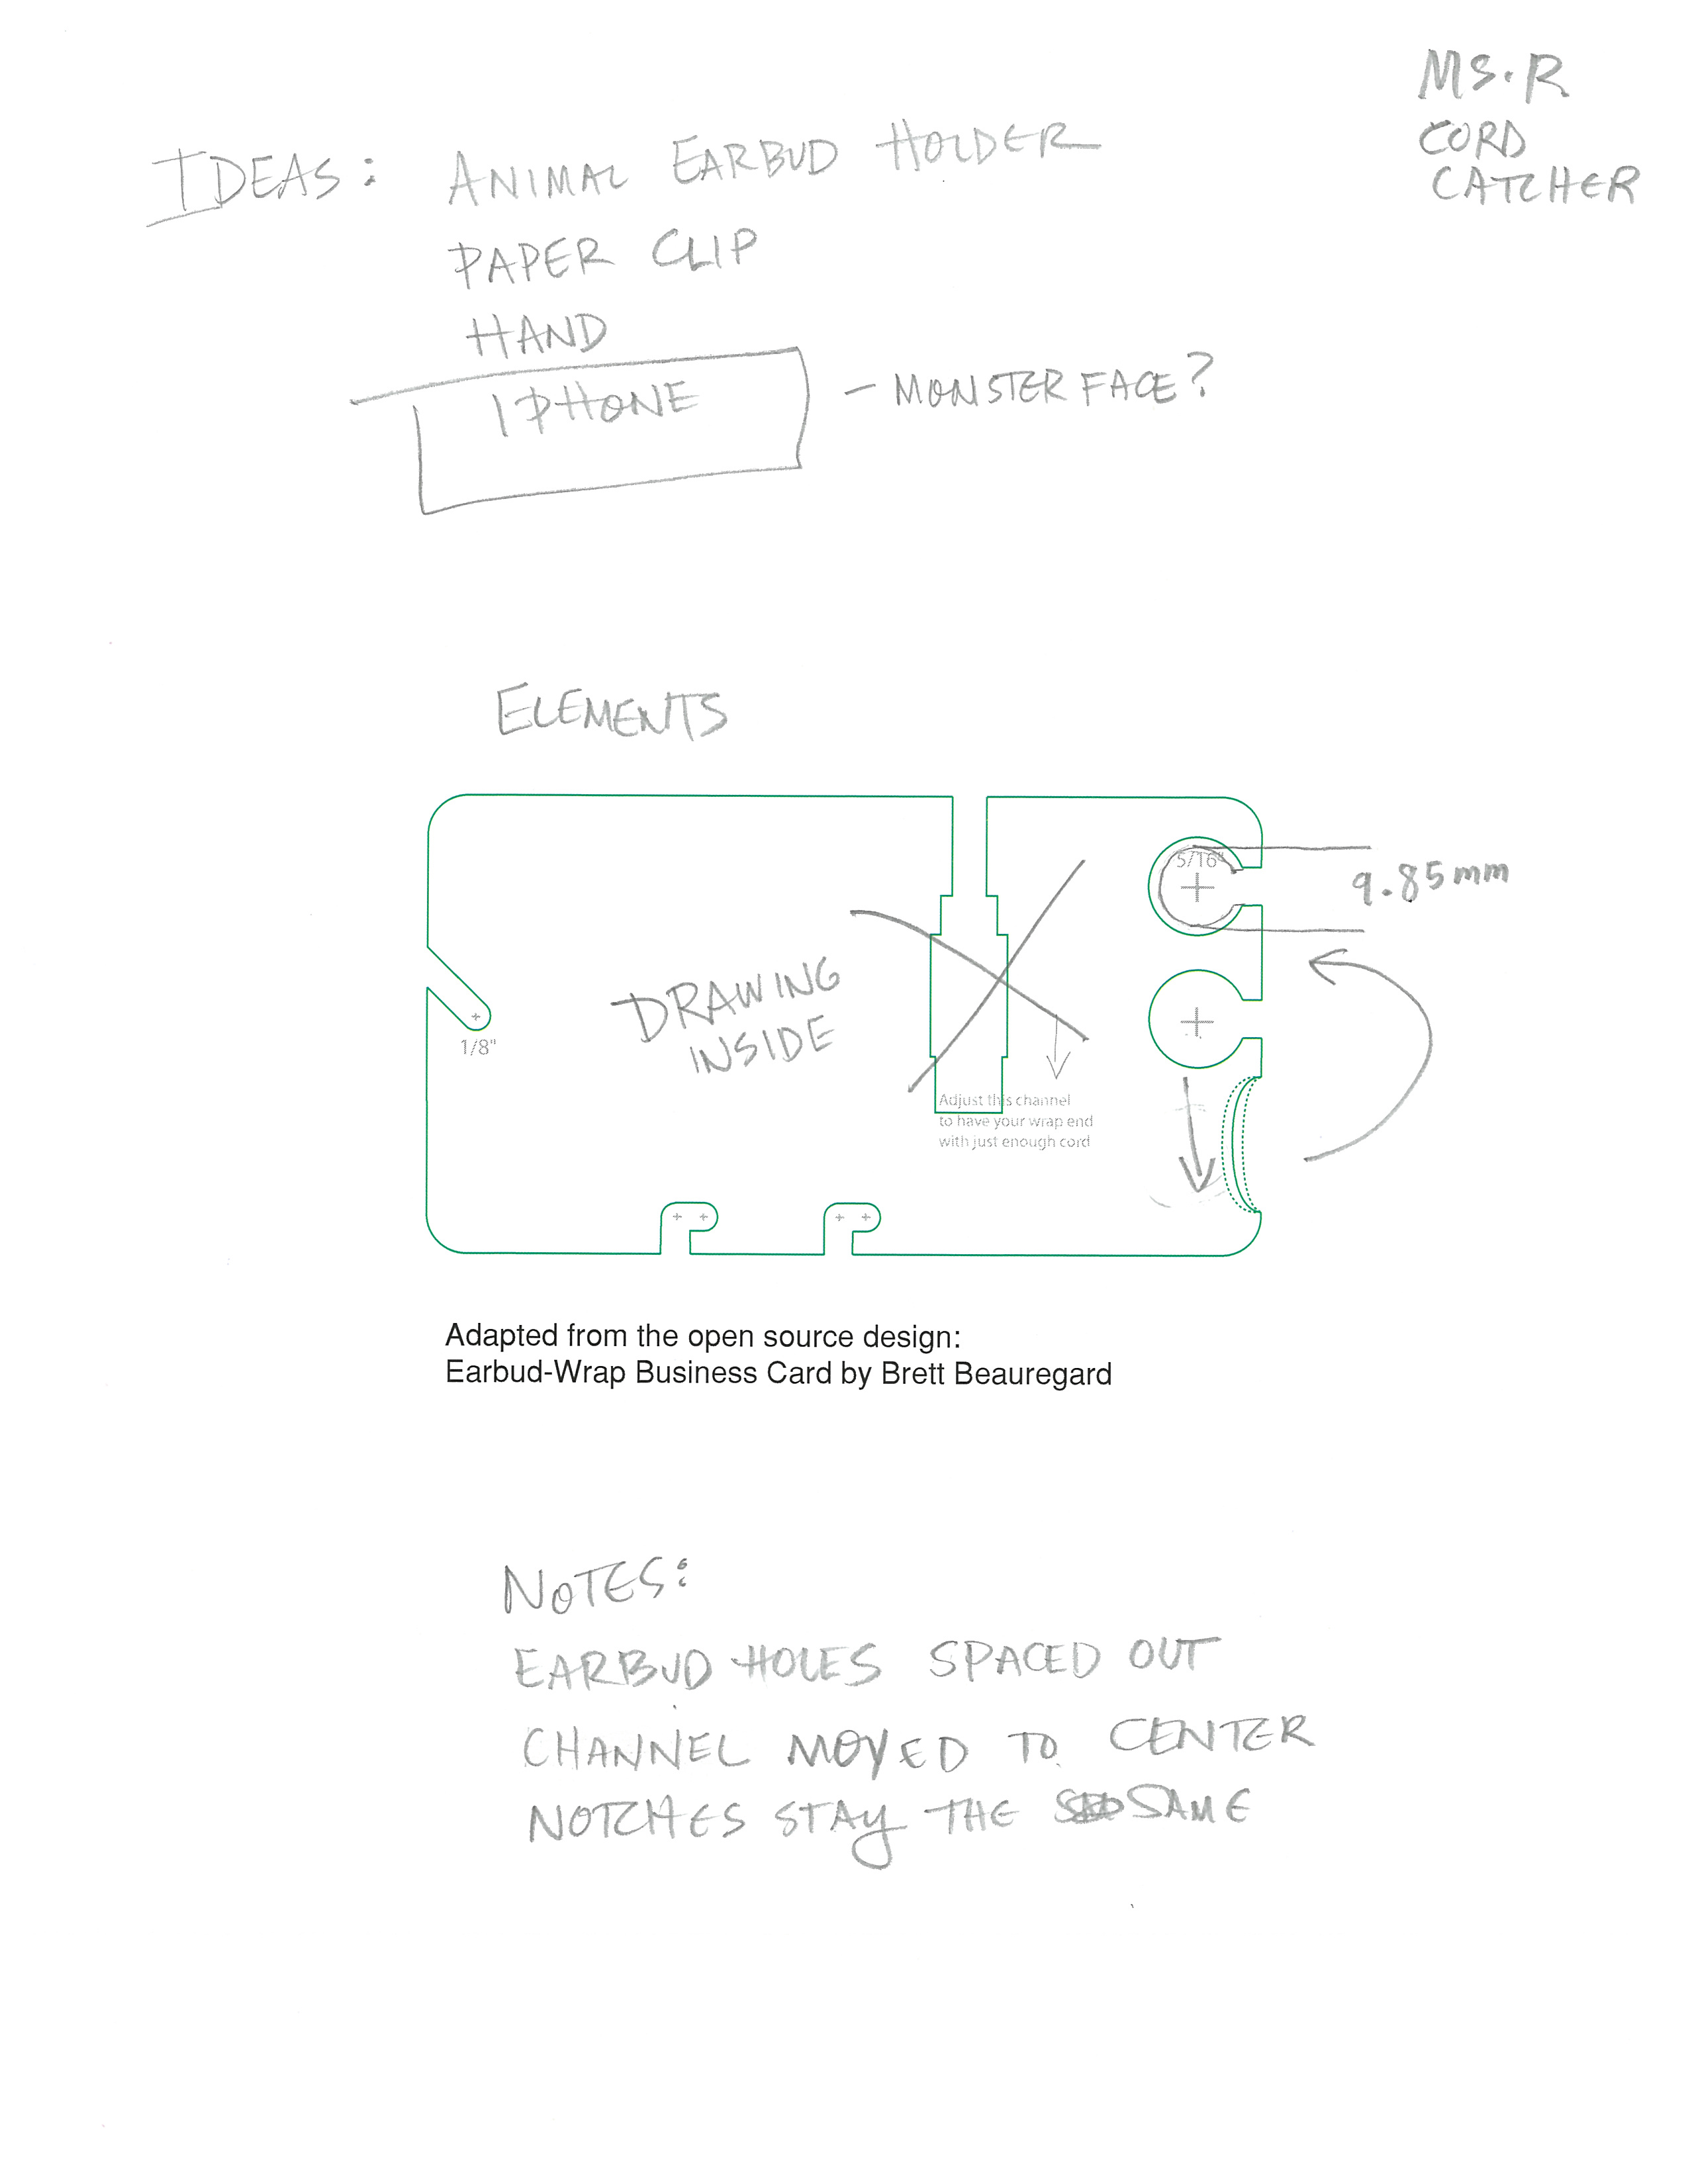 MS. R
CORD
CATCHER
IDEAS: ANIMAL EARBUD HOLDER
PAPER CLIP
HAND
IPHONE - MONSTER FACE?
ELEMENTS
5/16"
9.85mm
DRAWING
INSIDE
1/8"
Adjust this channel
to have your wrap end
with just enough cord
Adapted from the open source design:
Earbud-Wrap Business Card by Brett Beauregard
NOTES:
EARBUD HOLES SPACED OUT
CHANNEL MOVED TO CENTER
NOTCHES STAY THE SAME